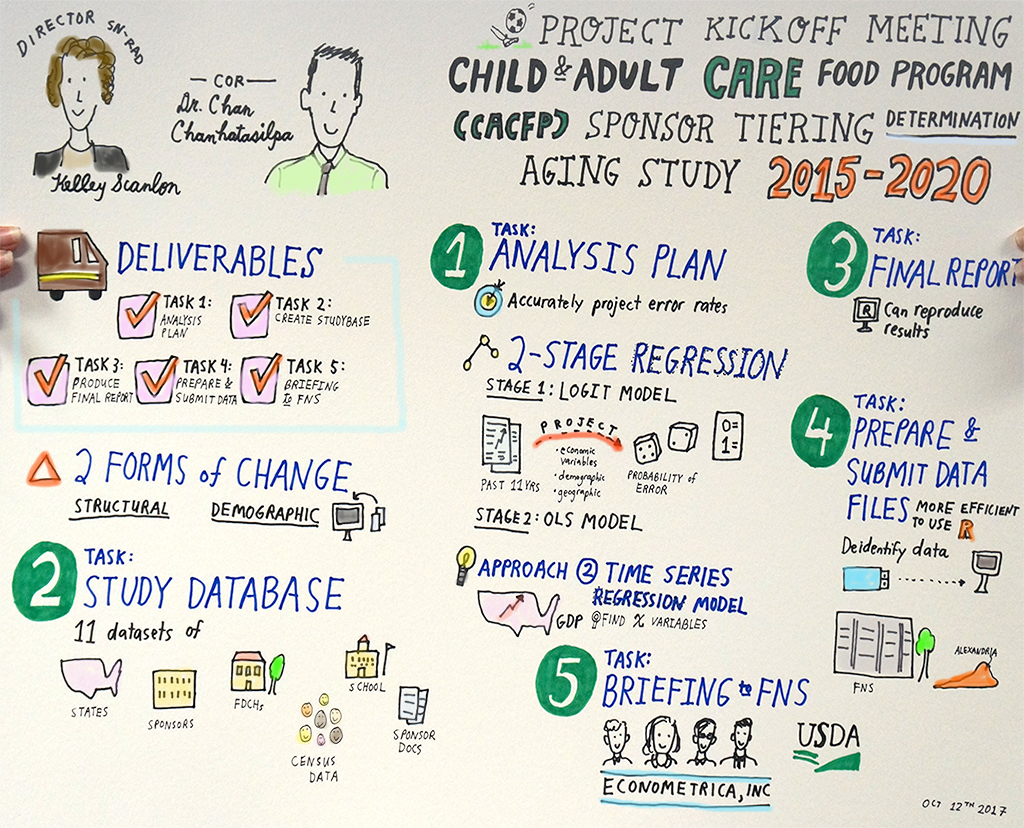 DIRECTOR SN-RAD
Kelley Scanlon
— COR —
Dr. Chan
Chanhatasilpa
PROJECT KICKOFF MEETING
CHILD & ADULT CARE FOOD PROGRAM
(CACFP) SPONSOR TIERING DETERMINATION
AGING STUDY 2015-2020
DELIVERABLES
TASK 1:
ANALYSIS
PLAN
TASK 2:
CREATE STUDYBASE
TASK 3:
PRODUCE
FINAL REPORT
TASK 4:
PREPARE &
SUBMIT DATA
TASK 5:
BRIEFING
to FNS
2 FORMS of CHANGE
STRUCTURAL DEMOGRAPHIC
2 TASK:
STUDY DATABASE
11 datasets of
STATES
SPONSORS
FDCHs
CENSUS
DATA
SCHOOL
SPONSOR
DOCS
1 TASK:
ANALYSIS PLAN
Accurately project error rates
2-STAGE REGRESSION
STAGE 1: LOGIT MODEL
PAST 11 YRS
PROJECT
• economic
variables
• demographic
• geographic
PROBABILITY of
ERROR
0=
1=
STAGE 2: OLS MODEL
APPROACH 2 TIME SERIES
REGRESSION MODEL
GDP FIND X VARIABLES
3 TASK:
FINAL REPORT
R Can reproduce
results
4 TASK:
PREPARE &
SUBMIT DATA
FILES MORE EFFICIENT
TO USE R
Deidentify data
FNS
ALEXANDRIA
5 TASK:
BRIEFING to FNS
ECONOMETRICA, INC
USDA
OCT 12TH 2017